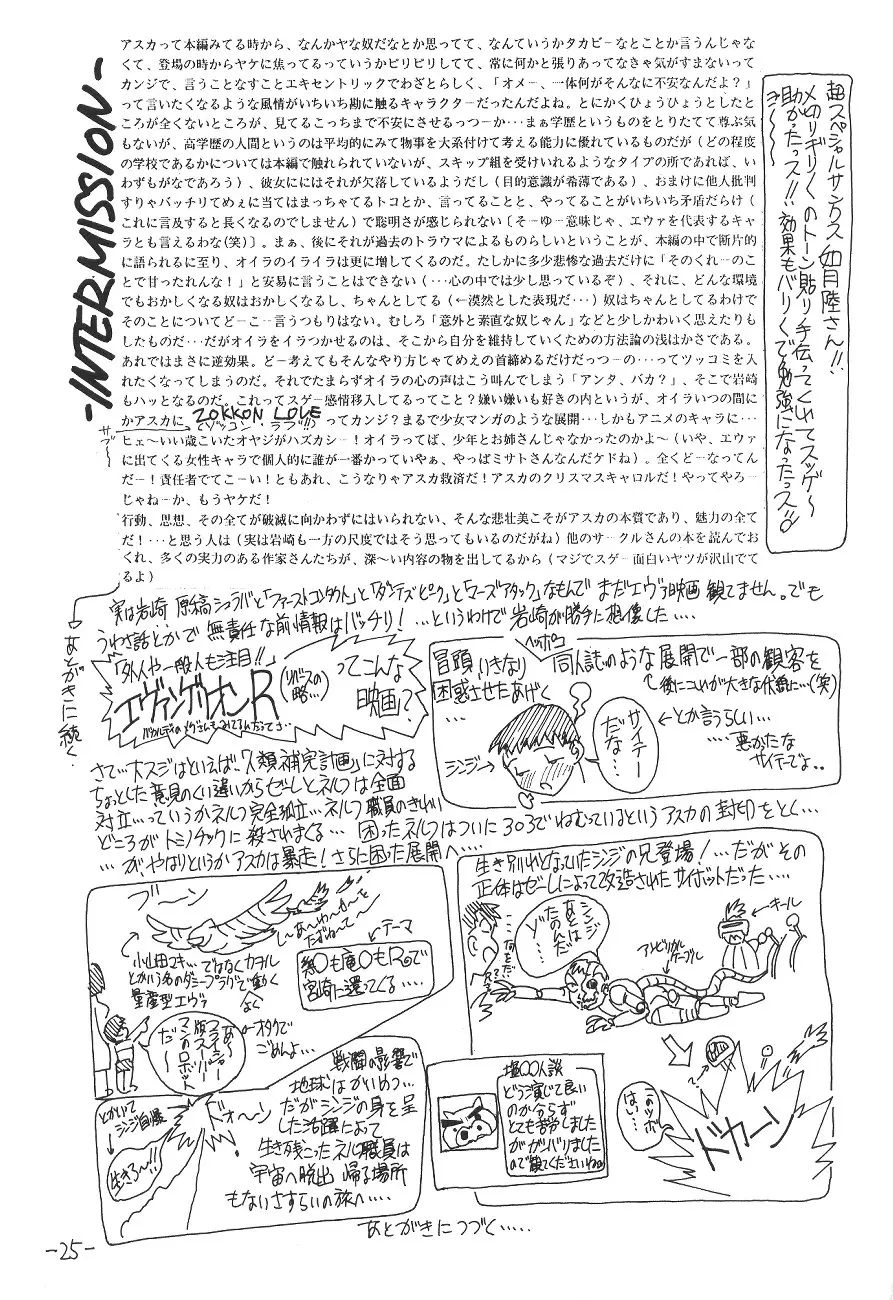 -INTERMISSION-
アスカって本編みてる時から、なんかヤな奴だなとか思ってて、なんていうかタカビーなとことか言うんじゃな
くて、登場の時からヤケに焦ってるっていうかピリピリしてて、常に何かと張りあってなきゃ気がすまないって
カンジで、言うことなすことエキセントリックでわざとらしく、「オメー、一体何がそんなに不安なんだよ?」
って言いたくなるような風情がいちいち勘に触るキャラクターだったんだよね。とにかくひょうひょうとしたと
ころが全くないところが、見てるこっちまで不安にさせるっつーか…まぁ学歴というものをとりたてて尊ぶ気
もないが、高学歴の人間というのは平均的にみて物事を大系付けて考える能力に優れているものだが(どの程度
の学校であるかについては本編で触れられていないが、スキップ組を受けいれるようなタイプの所であれば、い
わずもがなであろう)、彼女ににはそれが欠落しているようだし(目的意識が希薄である)、おまけに他人批判
すりゃバッチリてめぇに当てはまっちゃてるトコとか、言ってることと、やってることがいちいち矛盾だらけ(
これに言及すると長くなるのでしません)で聡明さが感じられない〔そーゆー意味じゃ、エヴァを代表するキャ
ラとも言えるわな(笑)〕。まぁ、後にそれが過去のトラウマによるものらしいということが、本編の中で断片的
に語られるに至り、オイラのイライラは更に増してくるのだ。たしかに多少悲惨な過去だけに「そのくれーのこ
とで甘ったれんな!」と安易に言うことはできない(…心の中では少し思っているぞ)、それに、どんな環境
でもおかしくなる奴はおかしくなるし、ちゃんとしてる(←漠然とした表現だ…)奴はちゃんとしてるわけで
そのことについてどーこー言うつもりはない。むしろ「意外と素直な奴じゃん」などと少しかわいく思えたりも
したものだ…だがオイラをイラつかせるのは、そこから自分を維持していくための方法論の浅はかさである。
あれではまさに逆効果。どー考えてもそんなやり方じゃてめえの首締めるだけだっつーの…ってツッコミを入
れたくなってしまうのだ。それでたまらずオイラの心の声はこう叫んでしまう「アンタ、バカ?」、そこで岩崎
もハッとなるのだ。これってスゲー感情移入してるってこと?嫌い嫌いも好きの内というが、オイラいつの間に
かアスカに、ZOKKON LOVEってカンジ?まるで少女マンガのような展開…しかもアニメのキャラに…
(ゾッコン・ラブ!!)
サブ~
ヒェ~いい歳こいたオヤジがハズカシー!オイラってば、少年とお姉さんじゃなかったのかよ~(いや、エヴァ
に出てくる女性キャラで個人的に誰が一番かっていやぁ、やっぱミサトさんなんだケドね)。全くどーなってん
だー!責任者でてこーい!ともあれ、こうなりゃアスカ救済だ!アスカのクリスマスキャロルだ!やってやろー
じゃねーか、もうヤケだ!
行動、思想、その全てが破滅に向かわずにはいられない、そんな悲壮美こそがアスカの本質であり、魅力の全て
だ!…と思う人は(実は岩崎も一方の尺度ではそう思ってもいるのだがね)他のサークルさんの本を読んでお
くれ、多くの実力のある作家さんたちが、深~い内容の物を出してるから(マジでスゲー面白いヤツが沢山でて
るよ)
あとがきに続く
超スペシャルサンクス 如月陸さん!!
〆切りギリギリのトーン貼り手伝ってくれてスッゲ~
助かったっス!!効果もバリバリで勉強になったっス!!
実は岩崎、原稿シュラバと「ファーストコンタクト」と「ダンテズピーク」と「マーズアタック」なもんで まだエヴァ映画観てません。でも
うわさ話とかで 無責任な前情報はバッチリ!…というわけで 岩崎が勝手に想像した‥‥
「外人や一般人も注目!!」
エヴァンゲリオンR
(リバースの略…)
ってこんな
映画?
冒頭、いきなり ヘッポコ同人誌のような展開で一部の観客を
困惑させたあげく
…
後にコレが大きな伏線に…(笑)
シンジ→
サイテーだな…
←とか言うらしい…
‥‥悪かたな
サイテーでよ。。
さて…大スジはといえば、「人類補完計画」に対する
ちょっとした意見のくい違いからゼーレとネルフは全面
対立…っていうかネルフ完全孤立…ネルフ職員のきれい
どころがトミノチックに殺されまくる… 困ったネルフはついに303でねむっているというアスカの封印をとく…
…がやはりというかアスカは暴走!さらに困った展開へ‥‥
ブーン
小山田マキ…ではなくカヲル
とかいう名のダミープラグで動く
量産型エヴァ
テーマ
宮崎に還ってくる‥‥
←オタクで
ごめんよ…
生き別れとなっていたシンジの兄登場!…だがその
正体はゼーレによって改造されたサイボットだった‥‥
シンジ
あとは
たのんだ
ゾ…
アンビリカル
ケーブル
←キール
ドカーン
塩〇〇人談
どう演じて良い
のか分らず
とても苦労しました
がガンバリました
ので観てくださいねoo
戦闘の影響で
地球はかいめつ…
だがシンジの身を呈
した活躍によって
生き残こったネルフ職員は
宇宙へ脱出 帰る場所
もないさすらいの旅へ‥‥
ドォーン
とかいって
シンジ自爆
生きろ~!!
あとがきにつづく‥‥‥
-25-